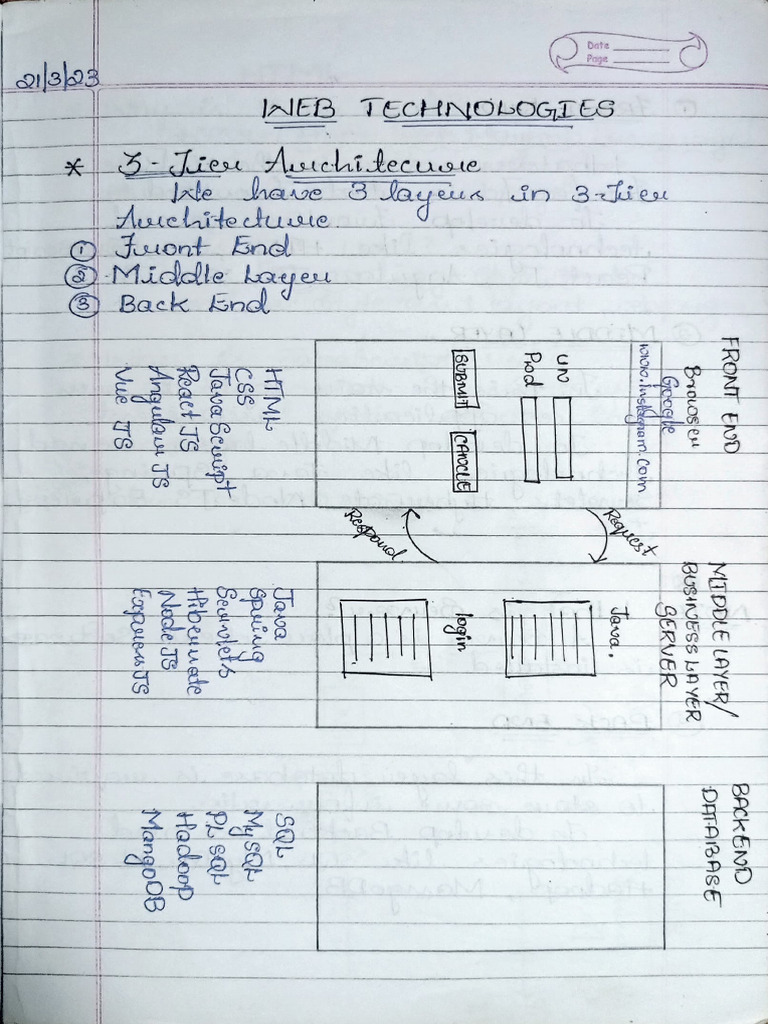 Date
Page
21/3/23
WEB TECHNOLOGIES
* 3-Tier Architecure
We have 3 layers in 3-Tier
Architecture
① Front End
② Middle Layer
③ Back End
FRONT END
Browser
Google
www.Instagram.com
UN
Pwd
SUBMIT CANCLE
HTML
CSS
Java Script
React JS
Angular JS
Vue JS
Request
Respond
MIDDLE LAYER/
BUSINESS LAYER
SERVER
Java.
login
Java
Spring
Servlets
Hibernate
Node JS
Express JS
BACKEND
DATABASE
SQL
My SQL
PL SQL
Hadoop
MangoDB